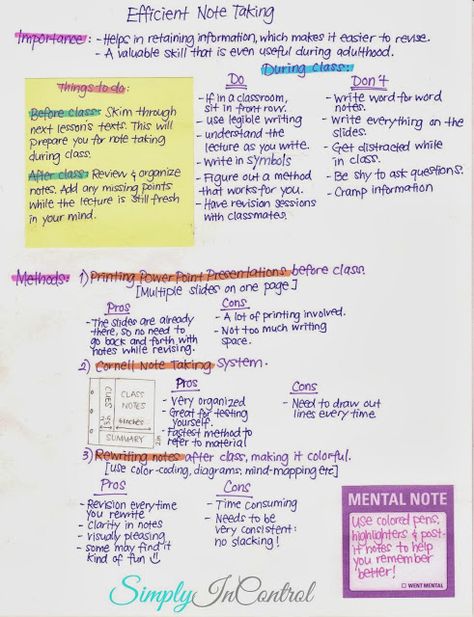 Efficient Note Taking
Importance: - Helps in retaining information, which makes it easier to revise.
- A valuable skill that is even useful during adulthood.
During class:
Things to do:
Before class: Skim through
next lesson's texts. This will
prepare you for note taking
during class.
After class: Review & organize
notes. Add any missing points
while the lecture is still fresh
in your mind.
Do
- If in a classroom,
sit in front row.
- use legible writing
- understand the
lecture as you write.
- Write in symbols
- Figure out a method
that works for you.
- Have revision sessions
with classmates.
Don't
- Write word for word
notes.
- Write everything on the
slides.
- Get distracted while
in class.
- Be shy to ask questions.
- Cramp information
Methods: 1) Printing PowerPoint Presentations before class.
[Multiple slides on one page]
Pros
- The slides are already
there, so no need to
go back and forth with
notes while revising.
Cons
- A lot of printing involved.
- Not too much writing
space.
2) Cornell Note Taking System.
CUES
CLASS
NOTES
6 inches
SUMMARY
Pros
- Very organized
- Great for testing
yourself.
- Fastest method to
refer to material
Cons
- Need to draw out
lines every time.
3) Rewriting notes after class, making it colorful.
[use color-coding, diagrams, mind-mapping etc]
Pros
- Revision everytime
you rewrite
- clarity in notes
- visually pleasing
- some may find it
kind of fun !!
Cons
- Time consuming
- Needs to be
very consistent:
no slacking!
MENTAL NOTE
Use colored pens,
highlighters & post-
it notes to help
you remember
better!
WENT MENTAL
SimplyInControl